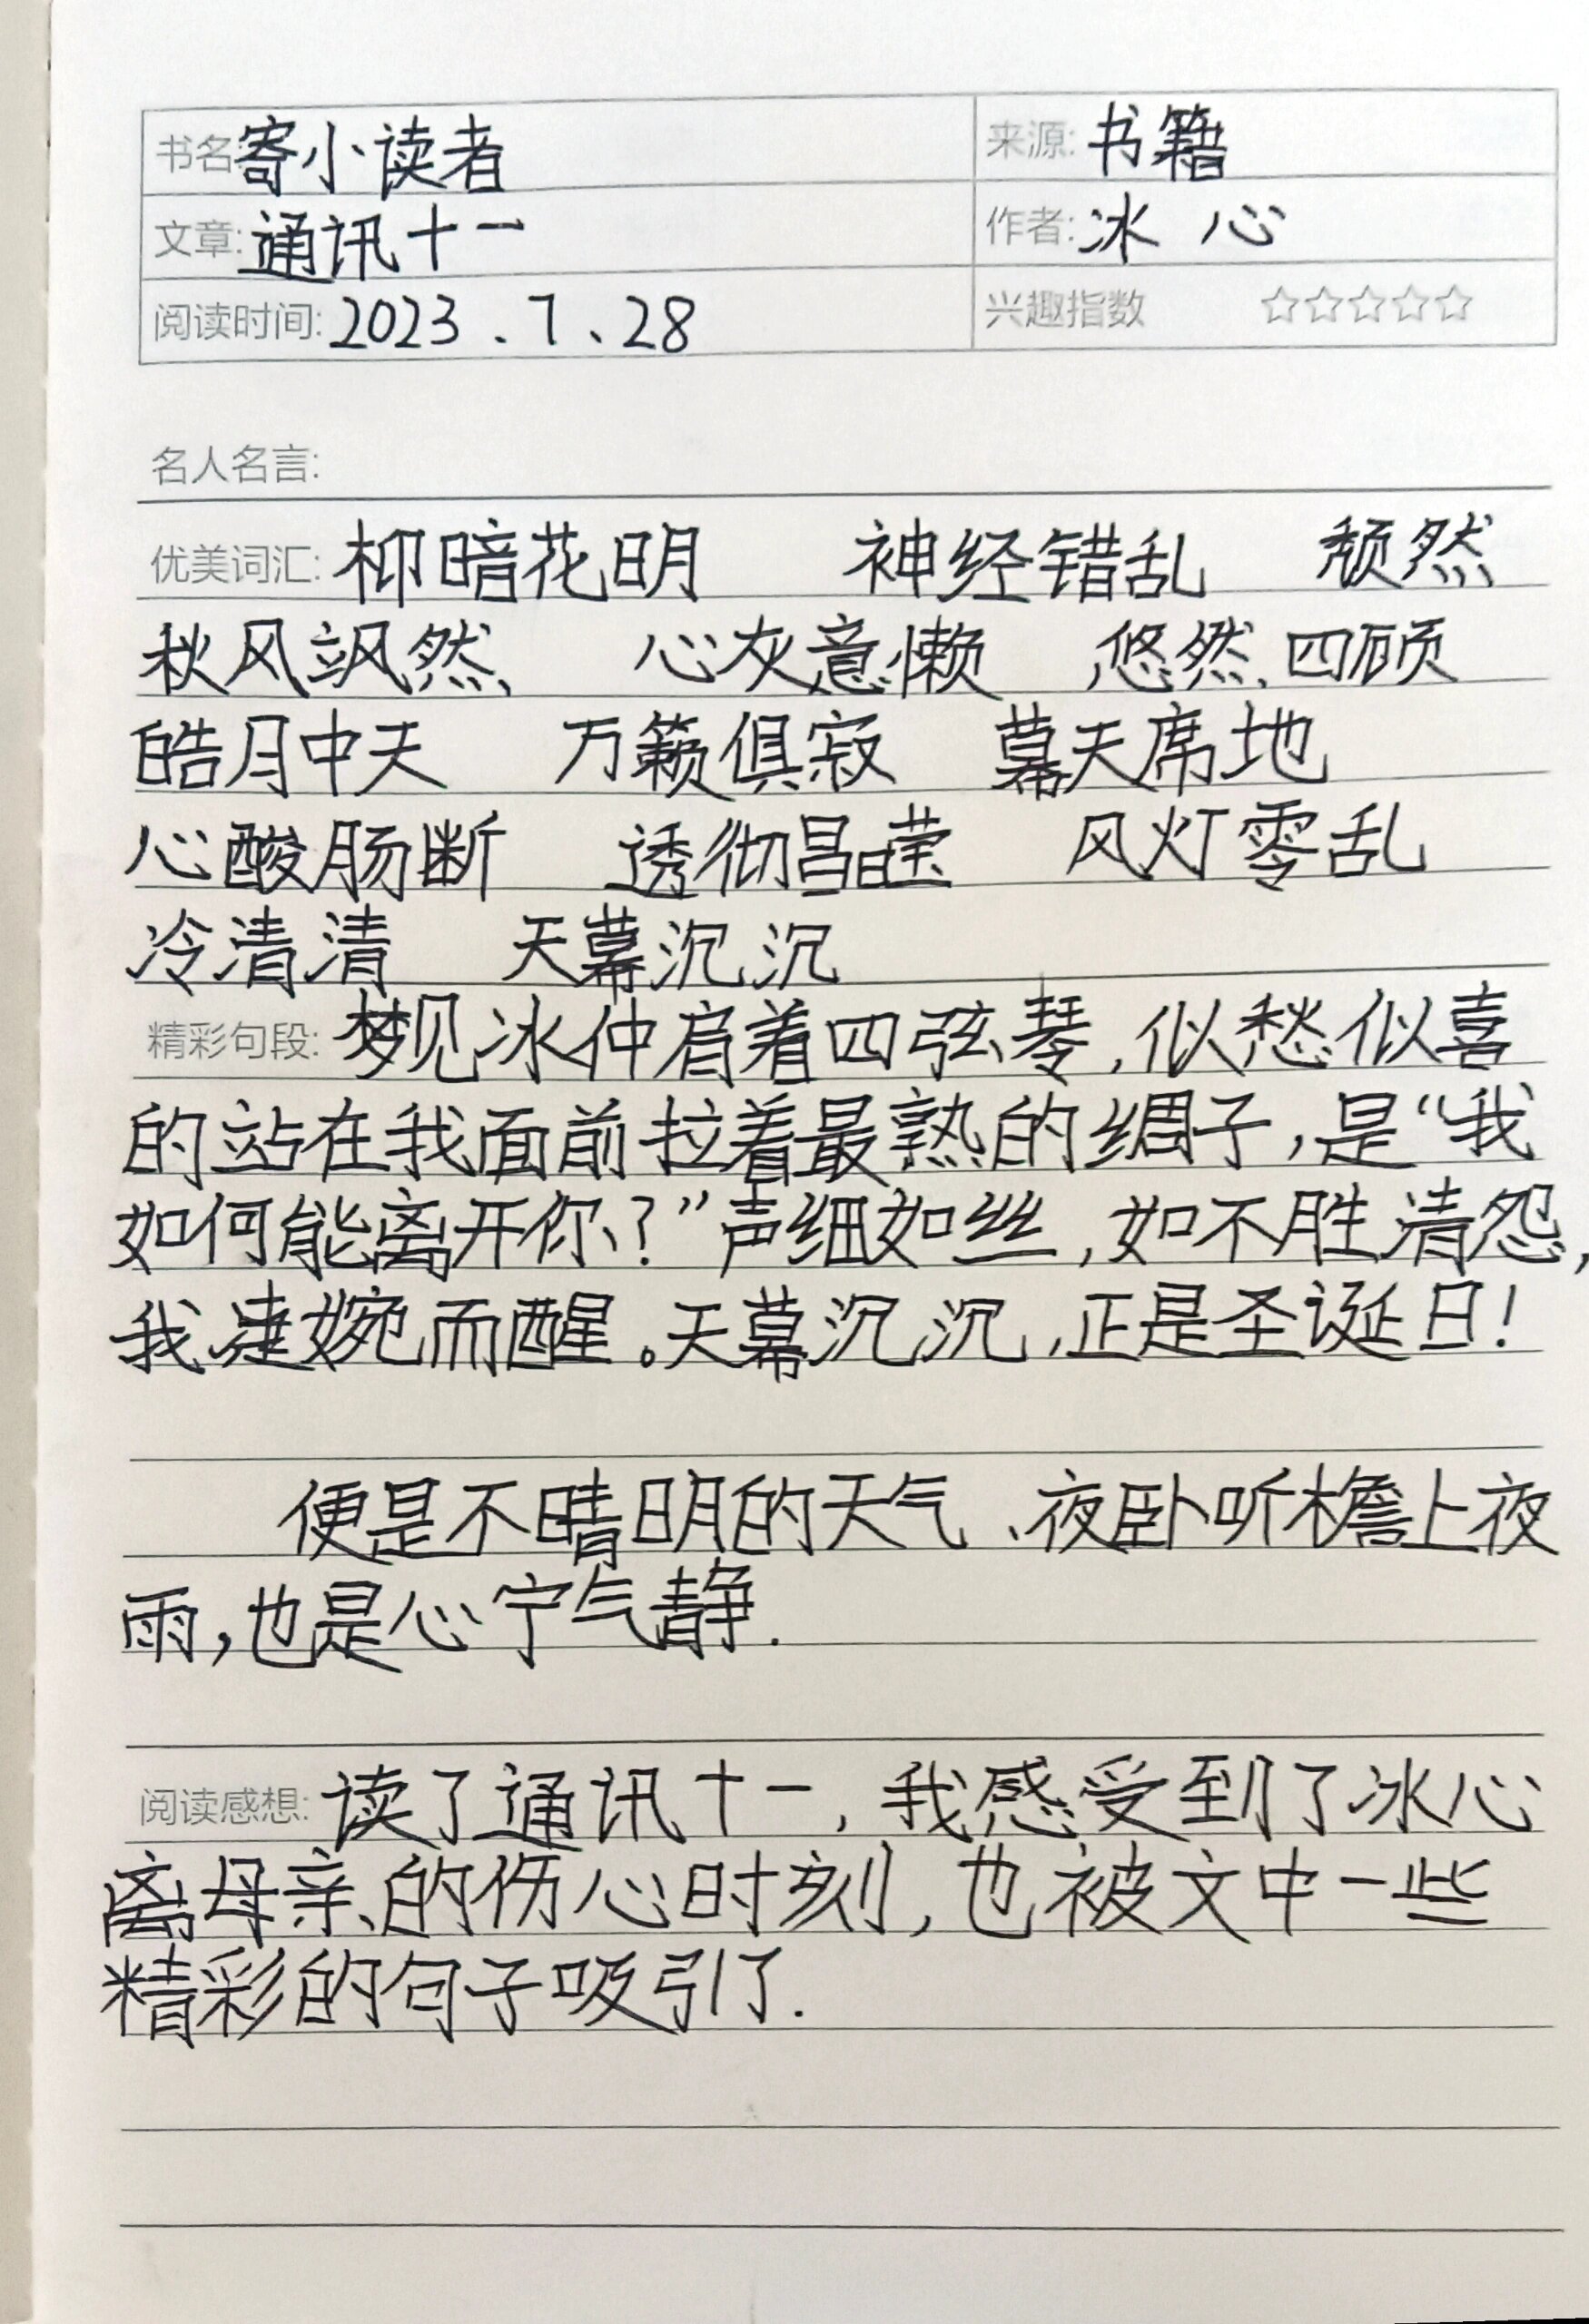 书名:寄小读者 来源:书籍
文章:通讯十一 作者:冰心
阅读时间:2023.7、28 兴趣指数 ☆☆☆☆☆
名人名言:
优美词汇:柳暗花明 神经错乱 颓然
秋风飒然 心灰意懒 悠然四顾
皓月中天 万籁俱寂 幕天席地
心酸肠断 透彻晶莹 风灯零乱
冷清清 天幕沉沉
精彩句段:梦见冰仲肩着四弦琴,似愁似喜
的站在我面前拉着最熟的绸子,是“我
如何能离开你?”声细如丝,如不胜清怨,
我凄婉而醒。天幕沉沉,正是圣诞日!
便是不晴明的天气、夜卧听檐上夜
雨,也是心宁气静.
阅读感想:读了通讯十一,我感受到了冰心
离母亲的伤心时刻,也被文中一些
精彩的句子吸引了.